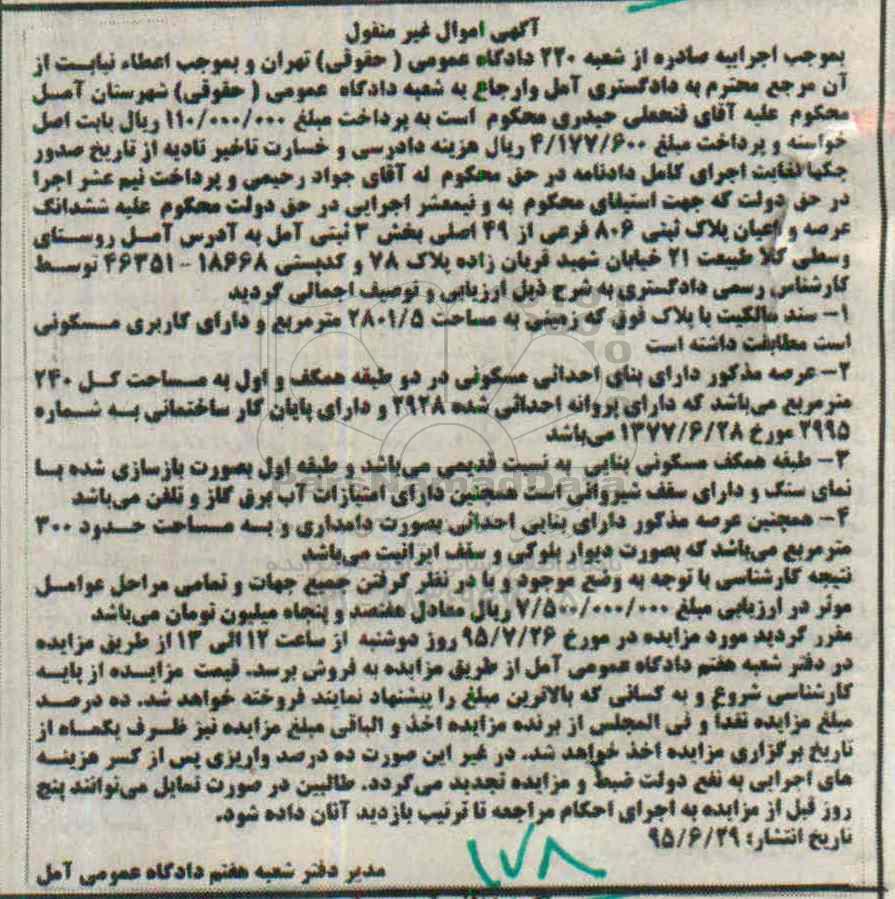 آگهی اموال غیر منقول
بموجب اجراییه صادره از شعبه ۲۲۰ دادگاه عمومی ( حقوقی) تهران و بموجب اعطاء نیابت از
آن مرجع محترم به دادگستری آمل وارجاع به شعبه دادگاه عمومی ( حقوقی) شهرستان آمل
محکوم علیه آقای فتحعلی حیدری محکوم است به پرداخت مبلغ ۱۱۰/۰۰۰/۰۰۰ ریال بابت اصل
خواسته و پرداخت مبلغ ۴/۱۷۷/۶۰۰ ریال هزینه دادرسی و خسارت تاخیر تادیه از تاریخ صدور
چکها لغایت اجرای کامل دادنامه در حق محکوم له آقای جواد رحیمی و پرداخت نیم عشر اجرا
در حق دولت که جهت استیفای محکوم به و نیمعشر اجرایی در حق دولت محکوم علیه ششدانگ
عرصه و اعیان پلاک ثبتی ۸۰۶ فرعی از ۴۹ اصلی بخش ۳ ثبتی آمل به آدرس آمل روستای
وسطی کلا طبیعت ۲۱ خیابان شهید قربان زاده پلاک ۷۸ و کدپستی ۱۸۶۶۸ - ۴۶۳۵۱ توسط
کارشناس رسمی دادگستری به شرح ذیل ارزیابی و توصیف اجمالی گردید
۱- سند مالکیت با پلاک فوق که زمینی به مساحت ۲۸۰۱/۵ مترمربع و دارای کاربری مسکونی
است مطابقت داشته است
۲- عرصه مذکور دارای بنای احداثی مسکونی در دو طبقه همکف و اول به مساحت کل ۲۴۰
مترمربع می‌باشد که دارای پروانه احداثی شده ۲۹۲۸ و دارای پایان کار ساختمانی به شماره
۲۹۹۵ مورخ ۱۳۷۷/۶/۲۸ می‌باشد
۳- طبقه همکف مسکونی بنایی به نسبت قدیمی می‌باشد و طبقه اول بصورت بازسازی شده با
نمای سنگ و دارای سقف شیروانی است همچنین دارای امتیازات آب برق گاز و تلفن می‌باشد
۴- همچنین عرصه مذکور دارای بنایی احداثی بصورت دامداری و به مساحت حدود ۳۰۰
مترمربع می‌باشد که بصورت دیوار بلوکی و سقف ایرانیت می‌باشد
نتیجه کارشناسی با توجه به وضع موجود و با در نظر گرفتن جمیع جهات و تمامی مراحل عوامل
موثر در ارزیابی مبلغ ۷/۵۰۰/۰۰۰/۰۰۰ ریال معادل هفتصد و پنجاه میلیون تومان می‌باشد
مقرر گردید مورد مزایده در مورخ ۹۵/۷/۲۶ روز دوشنبه از ساعت ۱۲ الی ۱۳ از طریق مزایده
در دفتر شعبه هفتم دادگاه عمومی آمل از طریق مزایده به فروش برسد. قیمت مزایده از پایه
کارشناسی شروع و به کسانی که بالاترین مبلغ را پیشنهاد نمایند فروخته خواهد شد. ده درصد
مبلغ مزایده نقدا و فی المجلس از برنده مزایده اخذ و الباقی مبلغ مزایده نیز ظرف یکماه از
تاریخ برگزاری مزایده اخذ خواهد شد. در غیر این صورت ده درصد واریزی پس از کسر هزینه
های اجرایی به نفع دولت ضبط و مزایده تجدید می‌گردد. طالبین در صورت تمایل می‌توانند پنج
روز قبل از مزایده به اجرای احکام مراجعه تا ترتیب بازدید آنان داده شود.
تاریخ انتشار: ۹۵/۶/۲۹
مدیر دفتر شعبه هفتم دادگاه عمومی آمل
۱۷۸
ParsNamadData